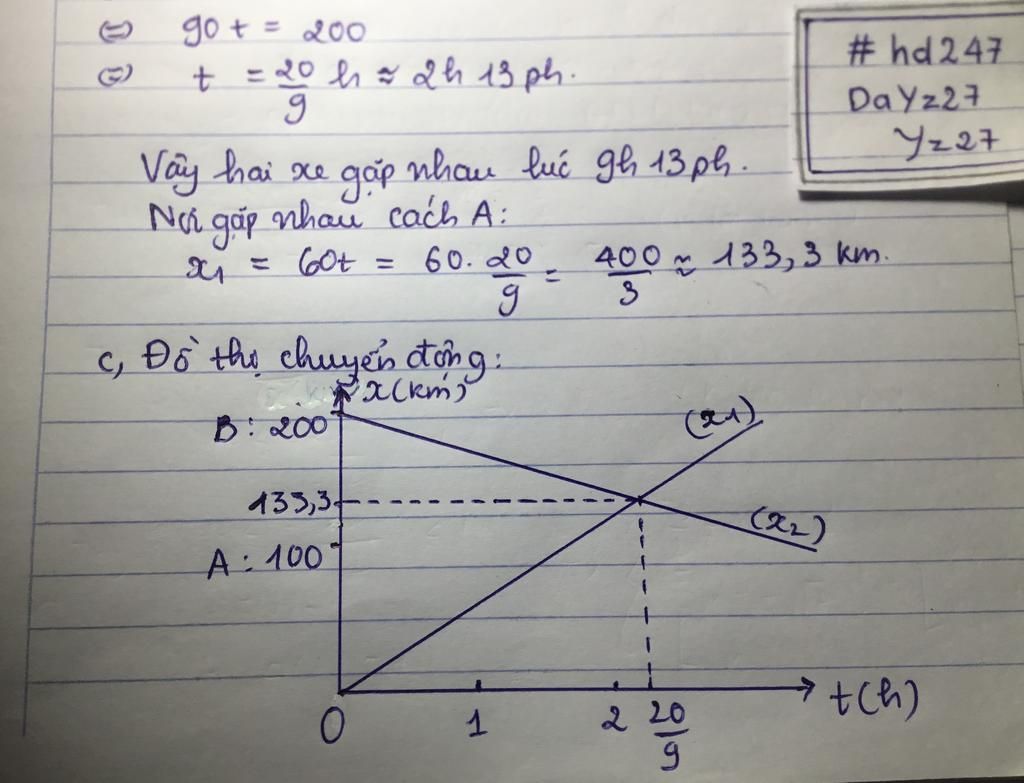 ⇔ 90t = 200
⇔ t = 20/9 h ≈ 2h 13 ph.
# hd247
DaYz27
Yz27
Vậy hai xe gặp nhau lúc 9h 13 ph.
Nơi gặp nhau cách A:
x₁ = 60t = 60. 20/9 = 400/3 ≈ 133,3 km.
c, Đồ thị chuyển động:
x(km)
B : 200
(x₁)
133,3
(x₂)
A : 100
0 1 2 20/9 t(h)